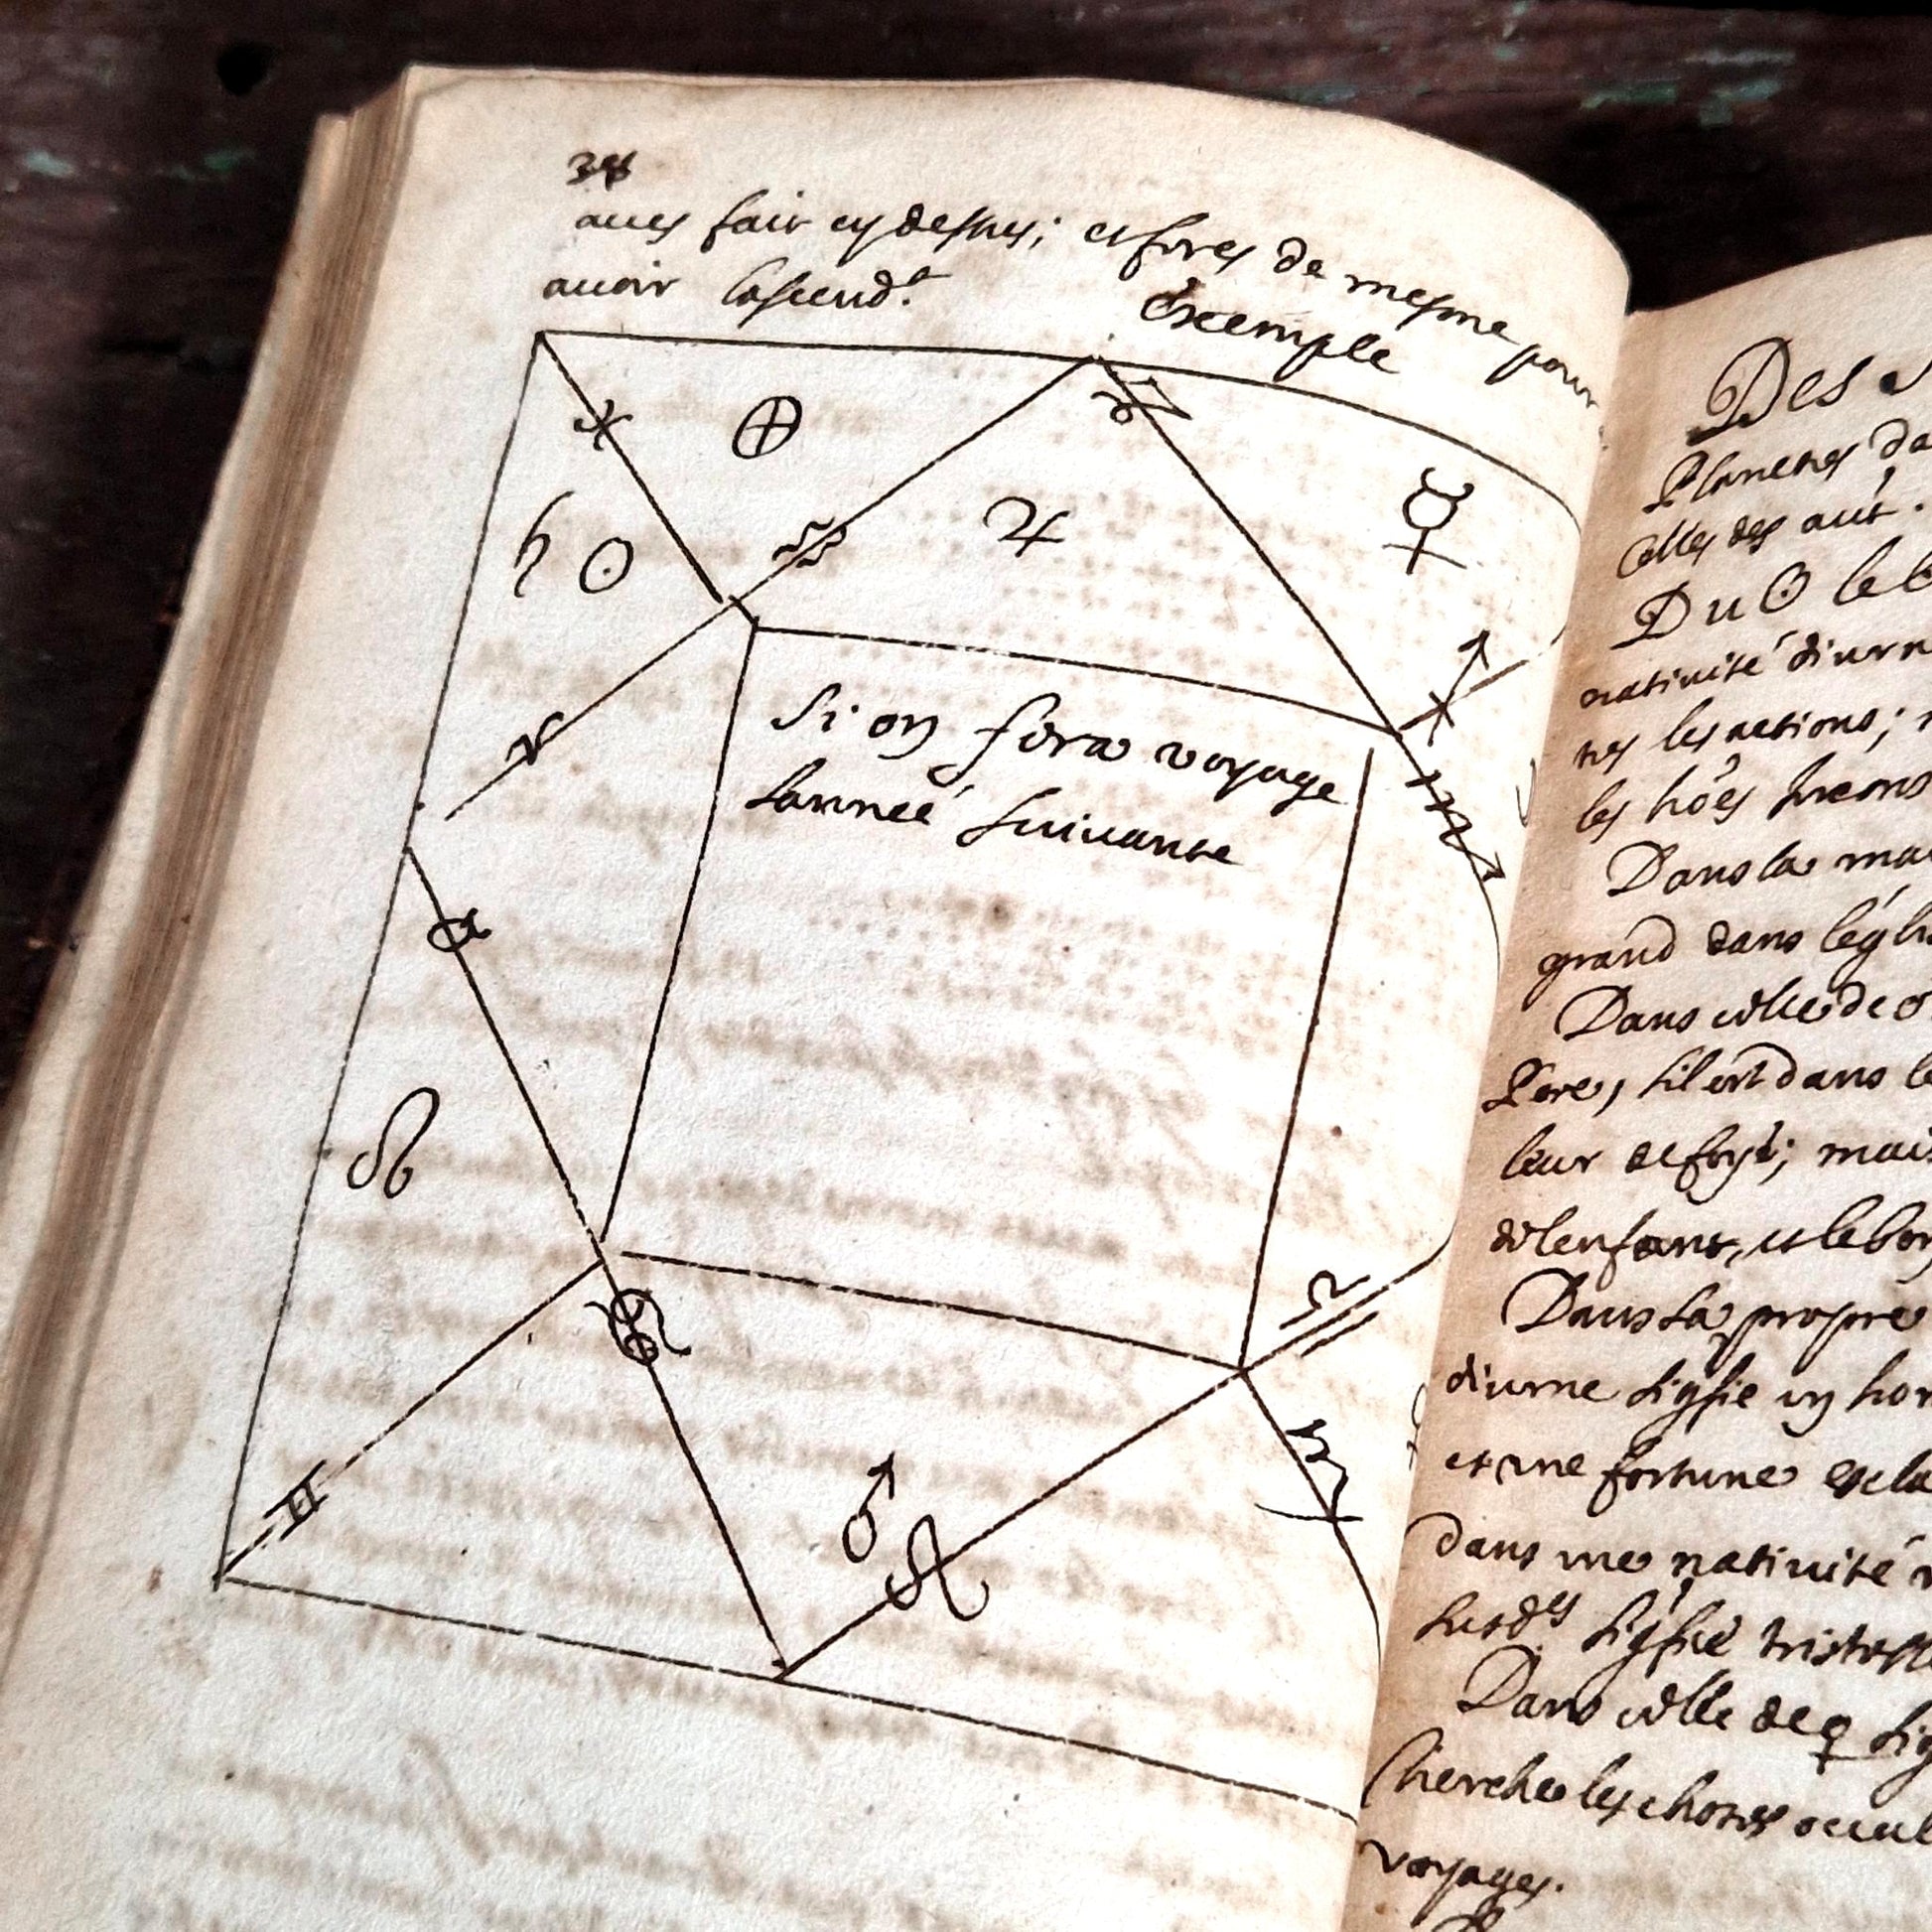 38
aues fait cy dessus; et feres de mesme pour
auoir lascend.t
Exemple
♓ ⊕ ♑
♄ ☉ ♒ ♃ ☿
♈ ♐
Si on fera voyage
lanneé suiuante
♉
☊ ♎
♋ ♏
♊ ♂ ♌
Des
Planetes da
Celles des aut.
Du ☉ le b
natiuité diurn
tes les actions;
les hoẽs
Dans la mai
grand dans légli
Dans celle de
Pere, sil est dans l
leur mais
de lenfant, et le bon
Dans sa propre
diurne sigfie vn hom
et vne fortune
dans vne natiuité
susd.es sigfie tristesse
Dans celle de ☿ sig
cherche les choses occul
voyages.